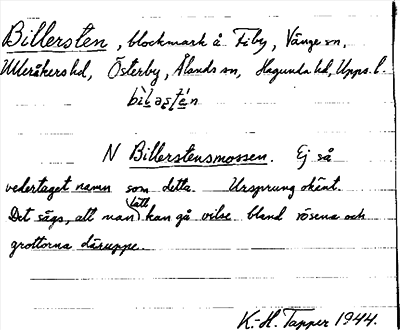 Billersten, blockmark å Fiby, Vänge sn,
Ulleråkers hd, Österby, Ålands sn, Hagunda hd, Upps. l.
N Billerstensmossen. Ej så
vedertaget namn som detta. Ursprung okänt.
lätt
Det sägs, att man kan gå vilse bland rösena och
grottorna däruppe.
K.-H. Tapper 1944.